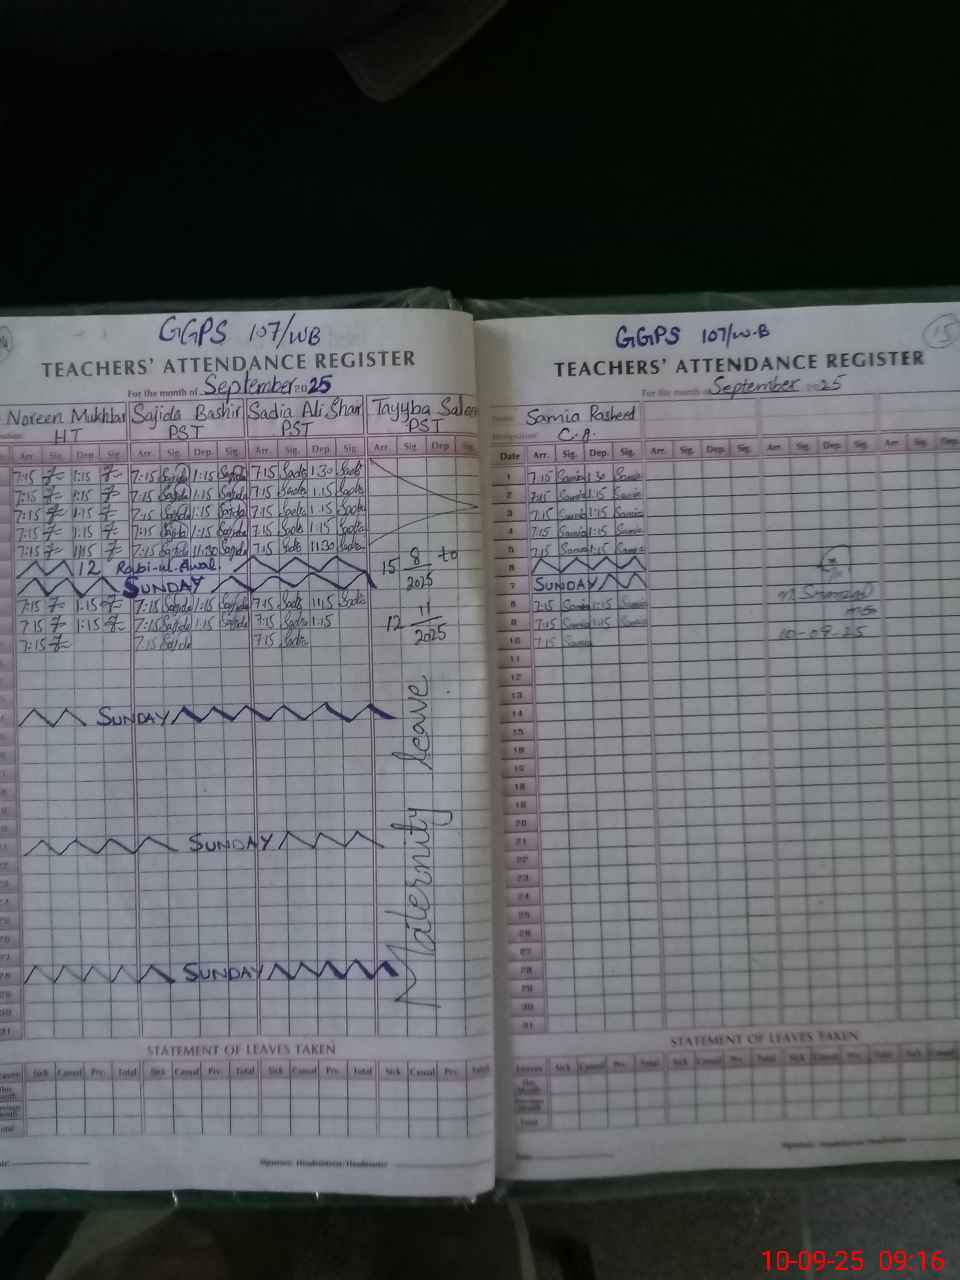 GGPS 107/WB
TEACHERS' ATTENDANCE REGISTER
For the month of September 2025
Noreen Mukhtar Sajida Bashir Sadia Ali Shar Tayyba Saleem
HT PST PST PST
Arr. Sig. Dep. Sig. Arr. Sig. Dep. Sig. Arr. Sig. Dep. Sig. Arr. Sig. Dep. Sig.
7:15 1:15 7:15 Sajida 1:15 Sajida 7:15 Sadia 1:30 Sadia
7:15 1:15 7:15 Sajida 1:15 Sajida 7:15 Sadia 1:15 Sadia
7:15 1:15 7:15 Sajida 1:15 Sajida 7:15 Sadia 1:15 Sadia
7:15 1:15 7:15 Sajida 1:15 Sajida 7:15 Sadia 1:15 Sadia
7:15 11:15 7:15 Sajida 11:30 Sajida 7:15 Sadia 11:30 Sadia
12 Rabi-ul-Awal 15 8/2025 to
SUNDAY
7:15 1:15 7:15 Sajida 1:15 Sajida 7:15 Sadia 1:15 Sadia
7:15 1:15 7:15 Sajida 1:15 Sajida 7:15 Sadia 1:15 12 11/2025
7:15 7:15 Sajida 7:15 Sadia
SUNDAY
SUNDAY
SUNDAY
Maternity leave
STATEMENT OF LEAVES TAKEN
Leaves Sick Casual Prv. Total Sick Casual Prv. Total Sick Casual Prv. Total Sick Casual Prv. Total
This Month
Total
Signature Headmistress/Headmaster
GGPS 107/W-B
15
TEACHERS' ATTENDANCE REGISTER
For the month of September 2025
Name Samia Rasheed
Designation
Date Arr. Sig. Dep. Sig. Arr. Sig. Dep. Sig. Arr. Sig. Dep. Sig. Arr. Sig. Dep.
1 7:15 Samia 1:30 Samia
2 7:15 Samia 1:15 Samia
3 7:15 Samia 1:15 Samia
4 7:15 Samia 1:15 Samia
5 7:15 Samia 1:15 Samia
6
7 SUNDAY
8 7:15 Samia 1:15 Samia
9 7:15 Samia 1:15 Samia
10 7:15 Samia
10-09-25
11
12
13
14
15
16
17
18
19
20
21
22
23
24
25
26
27
28
29
30
31
STATEMENT OF LEAVES TAKEN
Leaves Sick Casual Prv. Total Sick Casual Prv. Total Sick Casual Prv. Total Sick Casual
This Month
Previous Month
Total
Signature Headmistress/Headmaster
10-09-25 09:16